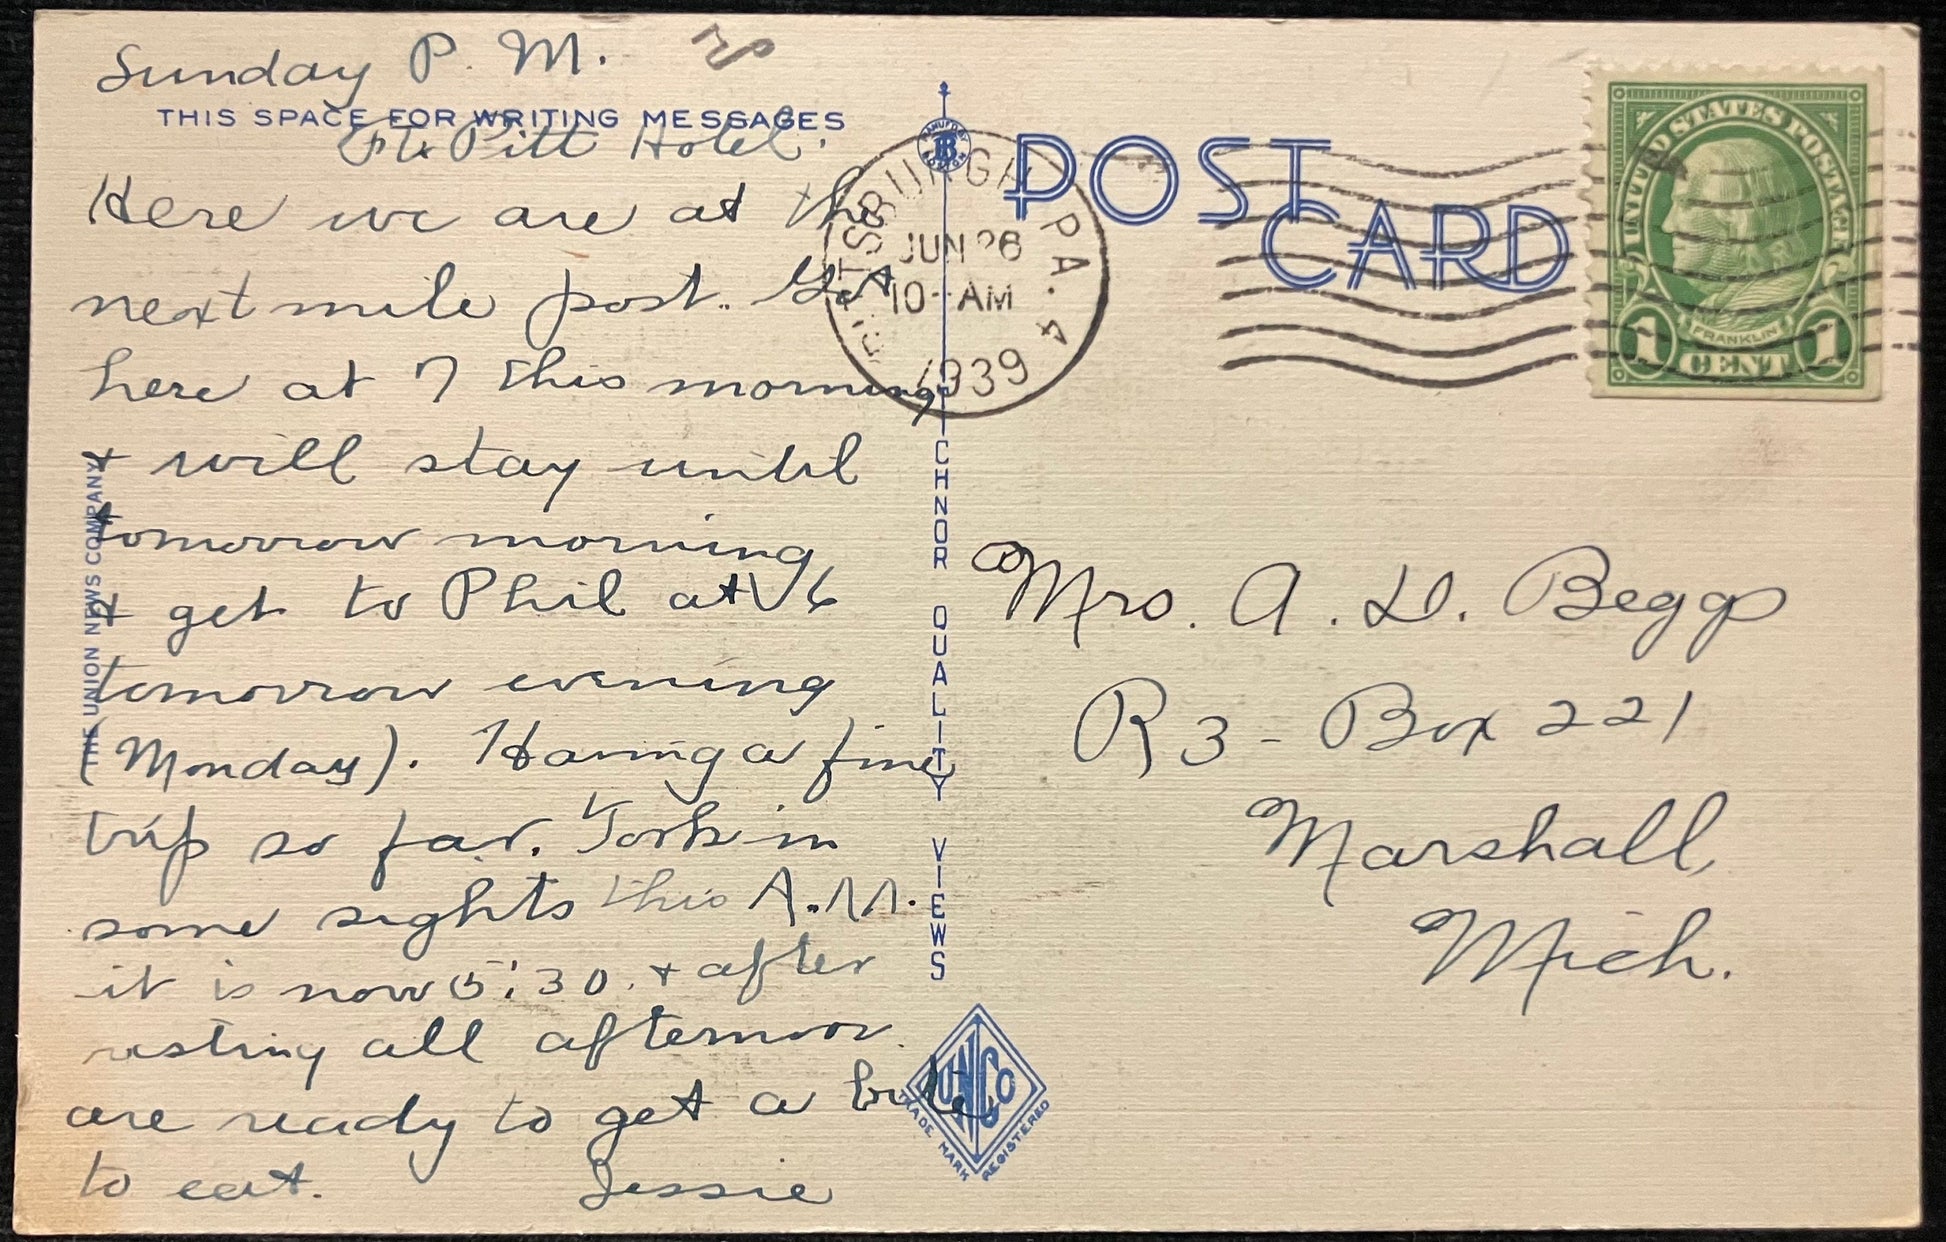 Sunday P. M.
THIS SPACE FOR WRITING MESSAGES
Ft. Pitt Hotel.
Here we are at the
next mile post. Got
here at 7 this morning
+ will stay until
tomorrow morning
+ get to Phil at 6
tomorrow evening
(Monday). Having a fine
trip so far. Took in
some sights this A.M.
it is now 5:30. + after
resting all afternoon
are ready to get a bite
to eat. Jessie
THE UNION NEWS COMPANY
TICHNOR QUALITY VIEWS
UNCO
TRADE MARK REGISTERED
PITTSBURGH, PA. 4
JUN 26
10-AM
1939
POST
CARD
UNITED STATES POSTAGE
FRANKLIN
1 CENT 1
Mrs. A. D. Beggs
R 3 - Box 221
Marshall,
Mich.